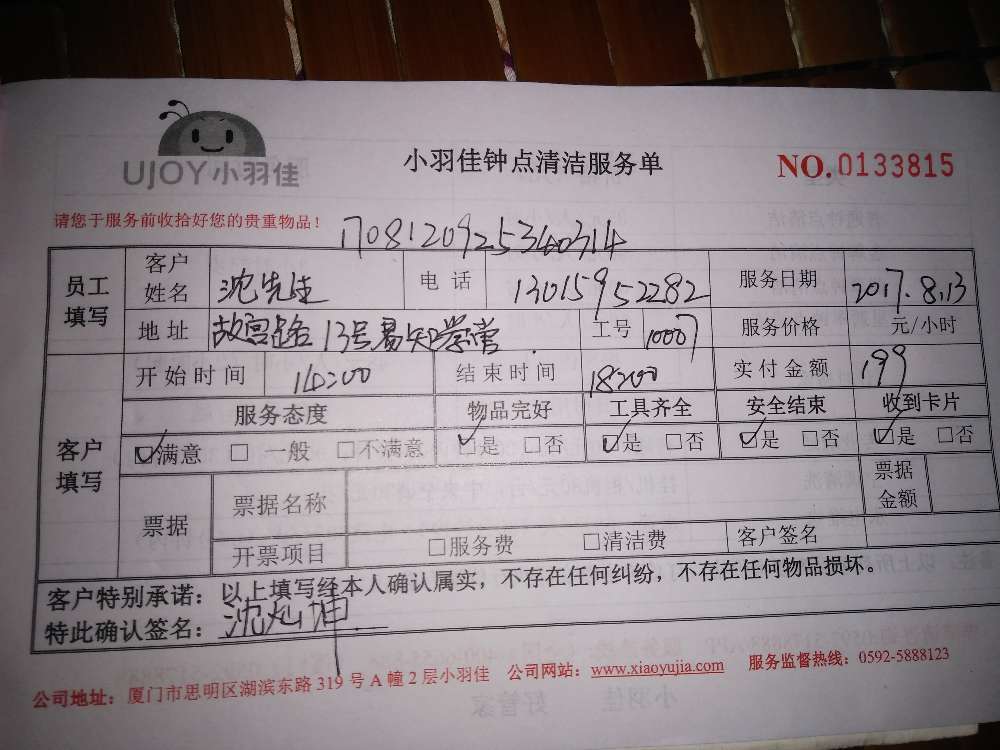 UJOY小羽佳
小羽佳钟点清洁服务单
NO.0133815
请您于服务前收拾好您的贵重物品！
1708120925340314
员工填写 客户姓名 沈先生 电话 13015952282 服务日期 2017.8.13
地址 故宫路13号易知学营 工号 10007 服务价格 元/小时
客户填写 开始时间 14:00 结束时间 18:00 实付金额 199
服务态度 物品完好 工具齐全 安全结束 收到卡片
☑满意 □一般 □不满意 ☑是 □否 ☑是 □否 ☑是 □否 ☑是 □否
票据 票据名称 票据金额
开票项目 □服务费 □清洁费 客户签名
客户特别承诺：以上填写经本人确认属实，不存在任何纠纷，不存在任何物品损坏。
特此确认签名：沈灿坤
公司地址：厦门市思明区湖滨东路319号A幢2层小羽佳 公司网站：www.xiaoyujia.com 服务监督热线：0592-5888123